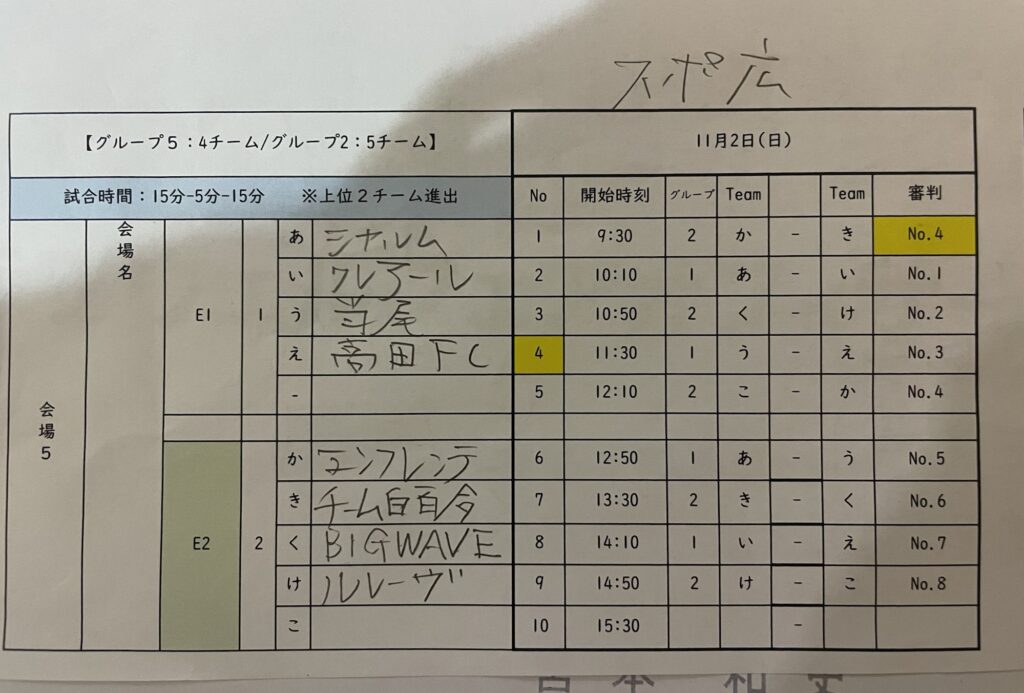 スポ広
【グループ5:4チーム/グループ2:5チーム】 11月2日(日)
試合時間:15分-5分-15分 ※上位2チーム進出 No 開始時刻 グループ Team Team 審判
会場5 会場名 E1 1 あ シャルム 1 9:30 2 か - き No.4
い クレアール 2 10:10 1 あ - い No.1
う 尾 3 10:50 2 く - け No.2
え 高田FC 4 11:30 1 う - え No.3
- 5 12:10 2 こ - か No.4
E2 2 か エンフレンテ 6 12:50 1 あ - う No.5
き チーム白百合 7 13:30 2 き - く No.6
く BIGWAVE 8 14:10 1 い - え No.7
け ルレーヴ 9 14:50 2 け - こ No.8
こ 10 15:30 -